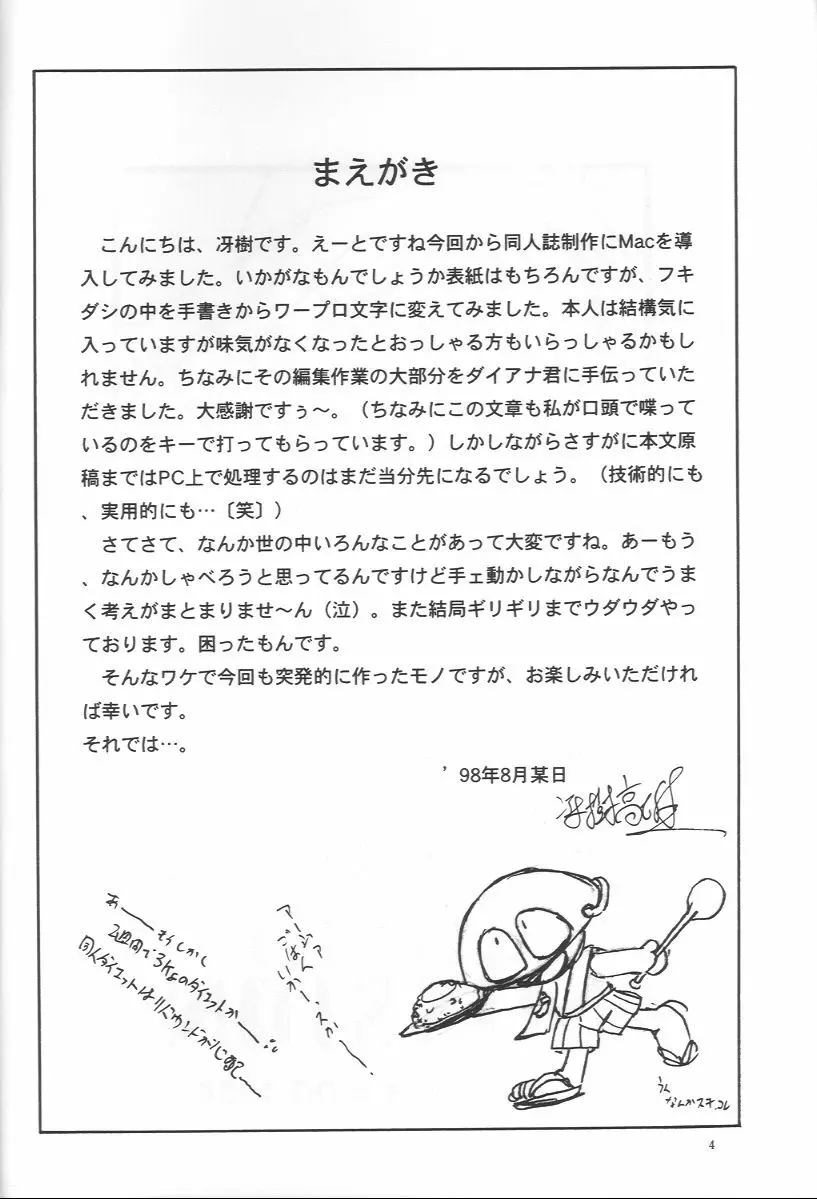 まえがき
こんにちは、冴樹です。えーとですね今回から同人誌制作にMacを導
入してみました。いかがなもんでしょうか表紙はもちろんですが、フキ
ダシの中を手書きからワープロ文字に変えてみました。本人は結構気に
入っていますが味気がなくなったとおっしゃる方もいらっしゃるかもし
れません。ちなみにその編集作業の大部分をダイアナ君に手伝っていた
だきました。大感謝ですぅ～。（ちなみにこの文章も私が口頭で喋って
いるのをキーで打ってもらっています。）しかしながらさすがに本文原
稿まではPC上で処理するのはまだ当分先になるでしょう。（技術的にも
、実用的にも…〔笑〕）
さてさて、なんか世の中いろんなことがあって大変ですね。あーもう
、なんかしゃべろうと思ってるんですけど手ェ動かしながらなんでうま
く考えがまとまりませ～ん（泣）。また結局ギリギリまでウダウダやっ
ております。困ったもんです。
そんなワケで今回も突発的に作ったモノですが、お楽しみいただけれ
ば幸いです。
それでは…。
’98年8月某日
冴樹高雄
あーーもくしかし
2週間で3Kgのダイエットかーー…
同人ダイエットはリバウンドが
ごはい
うん
なんかスキ、コレ
4